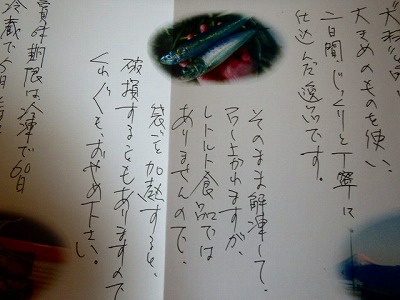 大きめのものを使い、
二日間じっくりと丁寧に
仕込んだ逸品です。
そのまま解凍して、
召し上がれますが、
レトルト食品では
ありませんので、
袋ごと加熱すると、
破損することもありますので
くれぐれも、おやめ下さい。
賞味期限は、冷凍で60日
冷蔵で5日